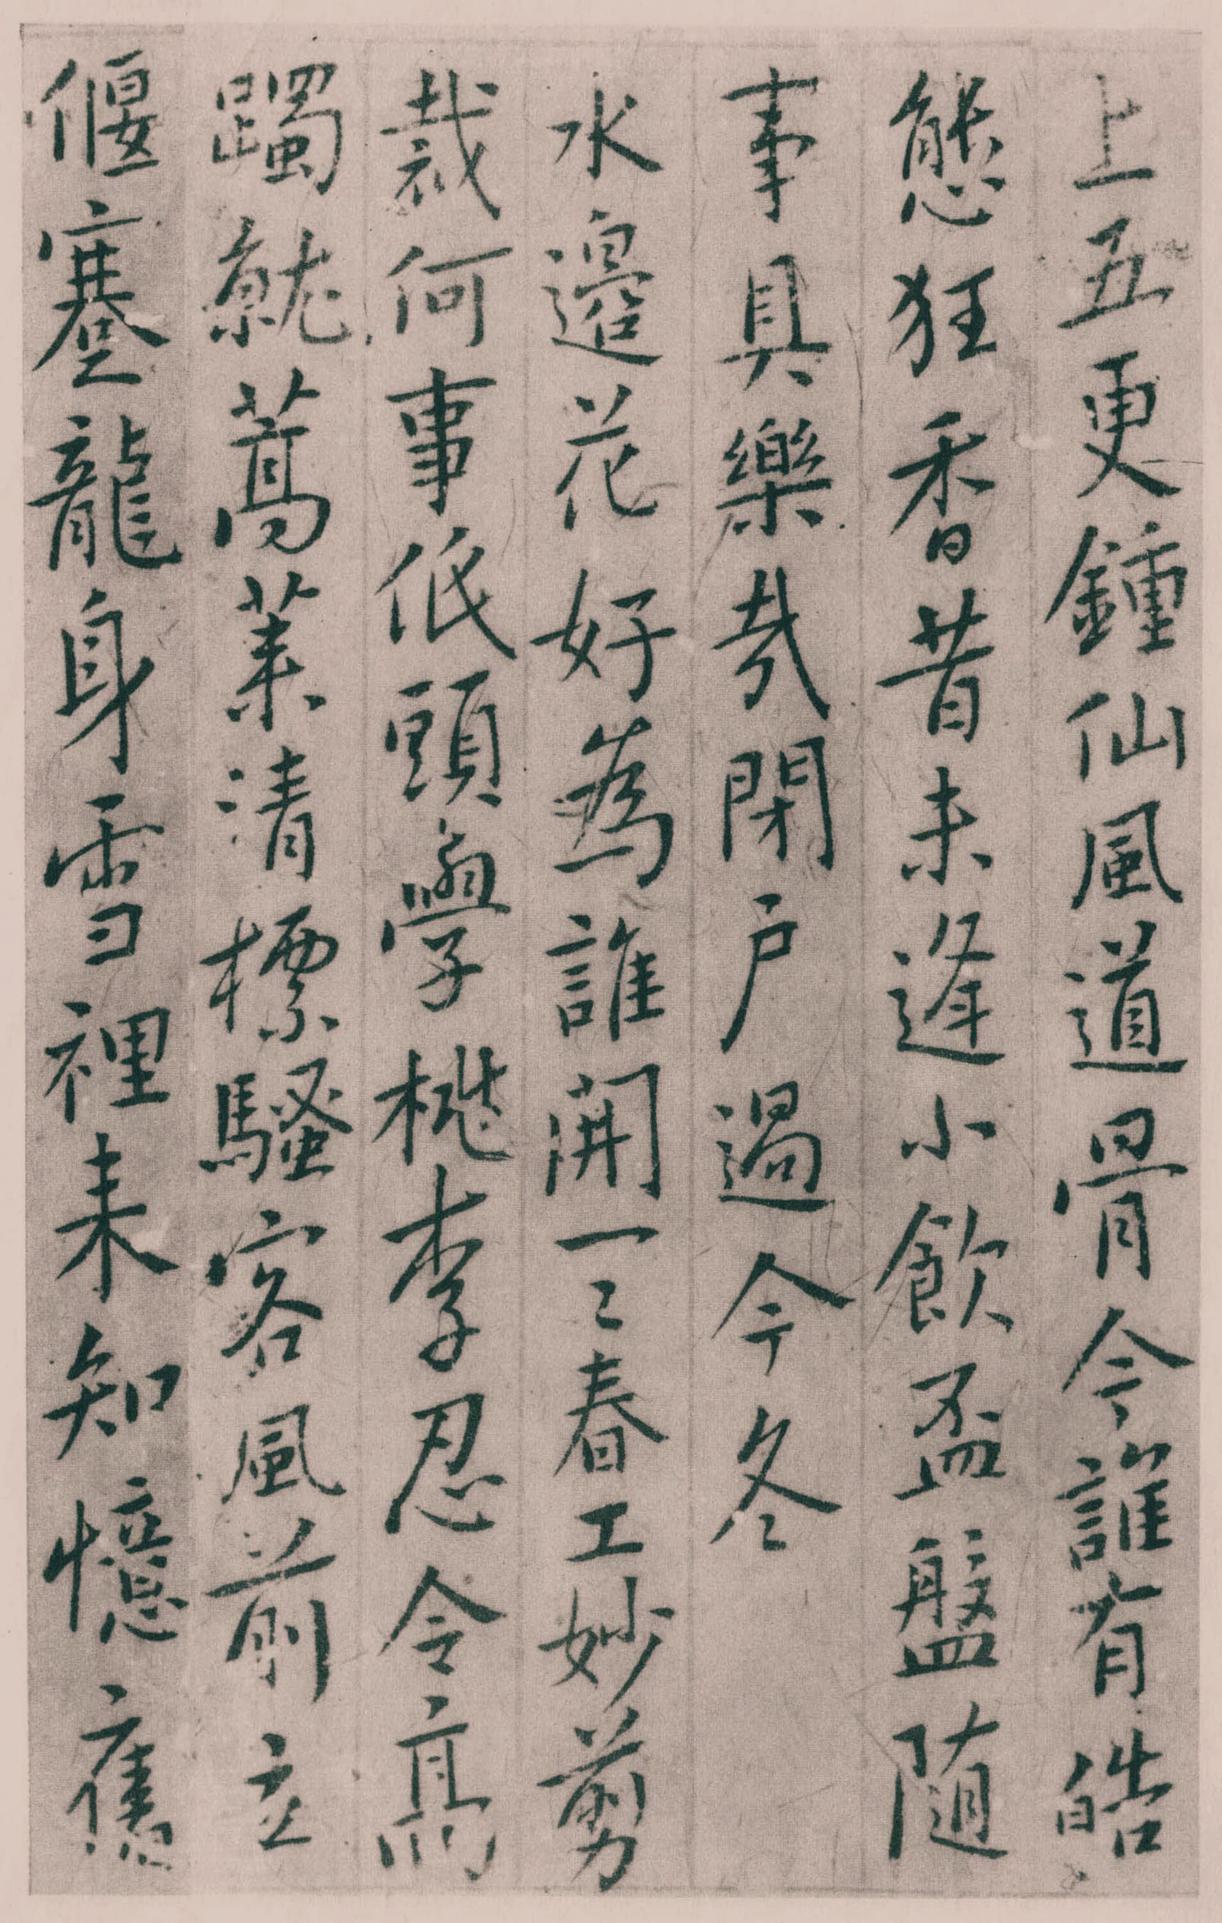 上五更鍾仙風道骨今誰有皓
態狂香昔未逢小飲盃盤随
事具樂哉閉户過今冬
水邊花好為誰開一〻春工妙剪
裁何事低頭學桃李忍令高
躅就蒿萊清標騷客風前立
偃蹇龍身雪裡来知憶舊